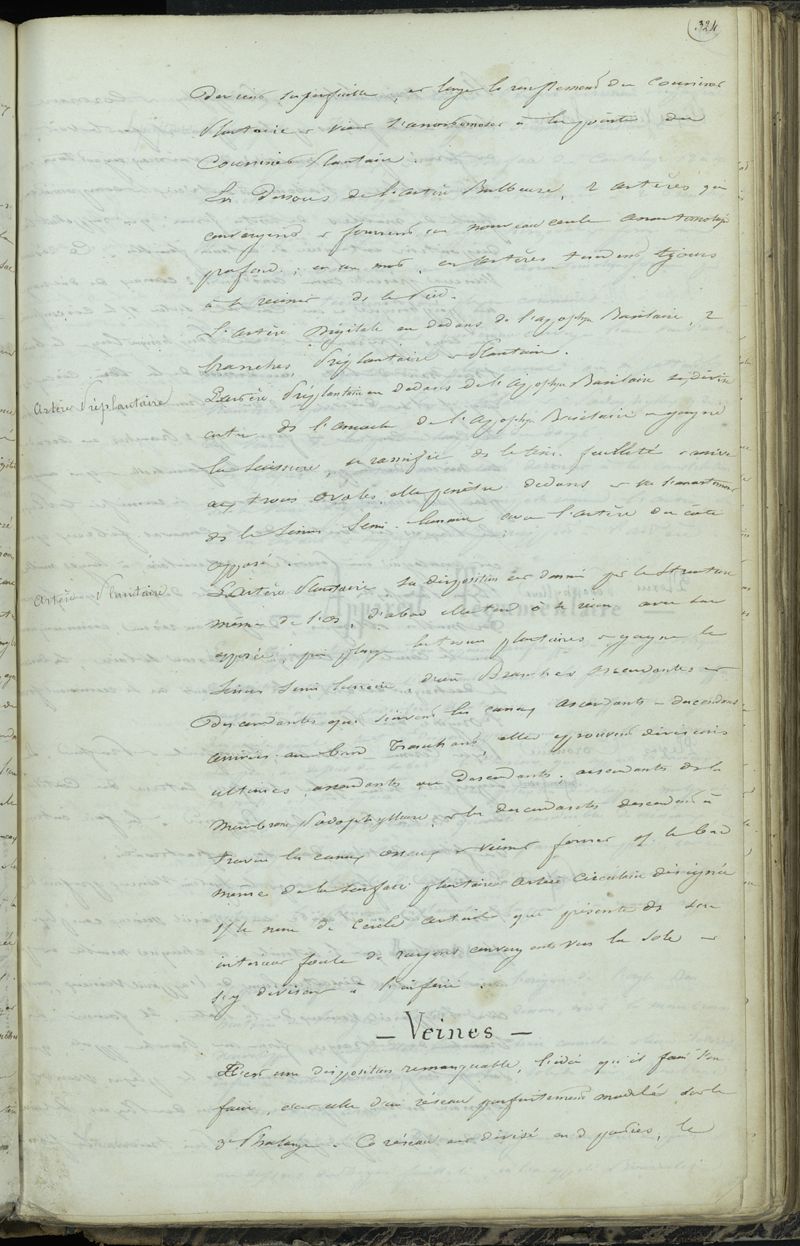 324
devient superficielle, et longe le renflement du coussinet
Plantaire et vient s'anastomoser à la pointe du
Coussinet Plantaire.
En Dessous de l'artère Bulbeuse, 2 artères qui
convergent et forment un nouveau cercle anastomotique
profond ; en un mot, ces artères tendent tjours
à se réunir ds le Pied.
L'artère Digitale en dedans de l'apophyse Basilaire, 2
branches, Préplantaire et Plantaire.
Artère Préplantaire
L'artère Préplantaire en dedans de l'apophyse Basilaire se dévie
ds l' de l'apophyse Basilaire et gagne
la Scissure, se ramifie ds le tissu feuilleté arrive
aux trous ovales, elle pénètre dedans et va s'anastomoser
ds le Sinus Semi-lunaire avec l'artère du côté
opposé.
Artère Plantaire
L'artère Plantaire sa disposition est donnée par la structure
même de l'os, d'abord elle tend à se réunir avec son
opposée, les trous plantaires et gagne le
Sinus Semi lunaire, d'où Branches ascendantes et
Descendantes qui suivent les canaux ascendants et descendants
arrivées au bord Tranchant, elles éprouvent divisions
ultimes, ascendantes ou Descendants. ascendants ds la
Membrane Podophylleuse, et les descendants descendent à
travers les canaux osseux et viennent former sf le bord
même de la surface plantaire artère circulaire désignée
sf le nom de Cercle artériel qui présente ds son
intérieur foule de rayons convergents vers la sole et
s'y divisent à l'infini.
- Veines -
C'est une disposition remarquable, l'idée qu'il faut s'en
faire, c'est celle d'un réseau parfaitement modelé sur la
3e Phalange. Ce réseau est divisé en 3 parties, le